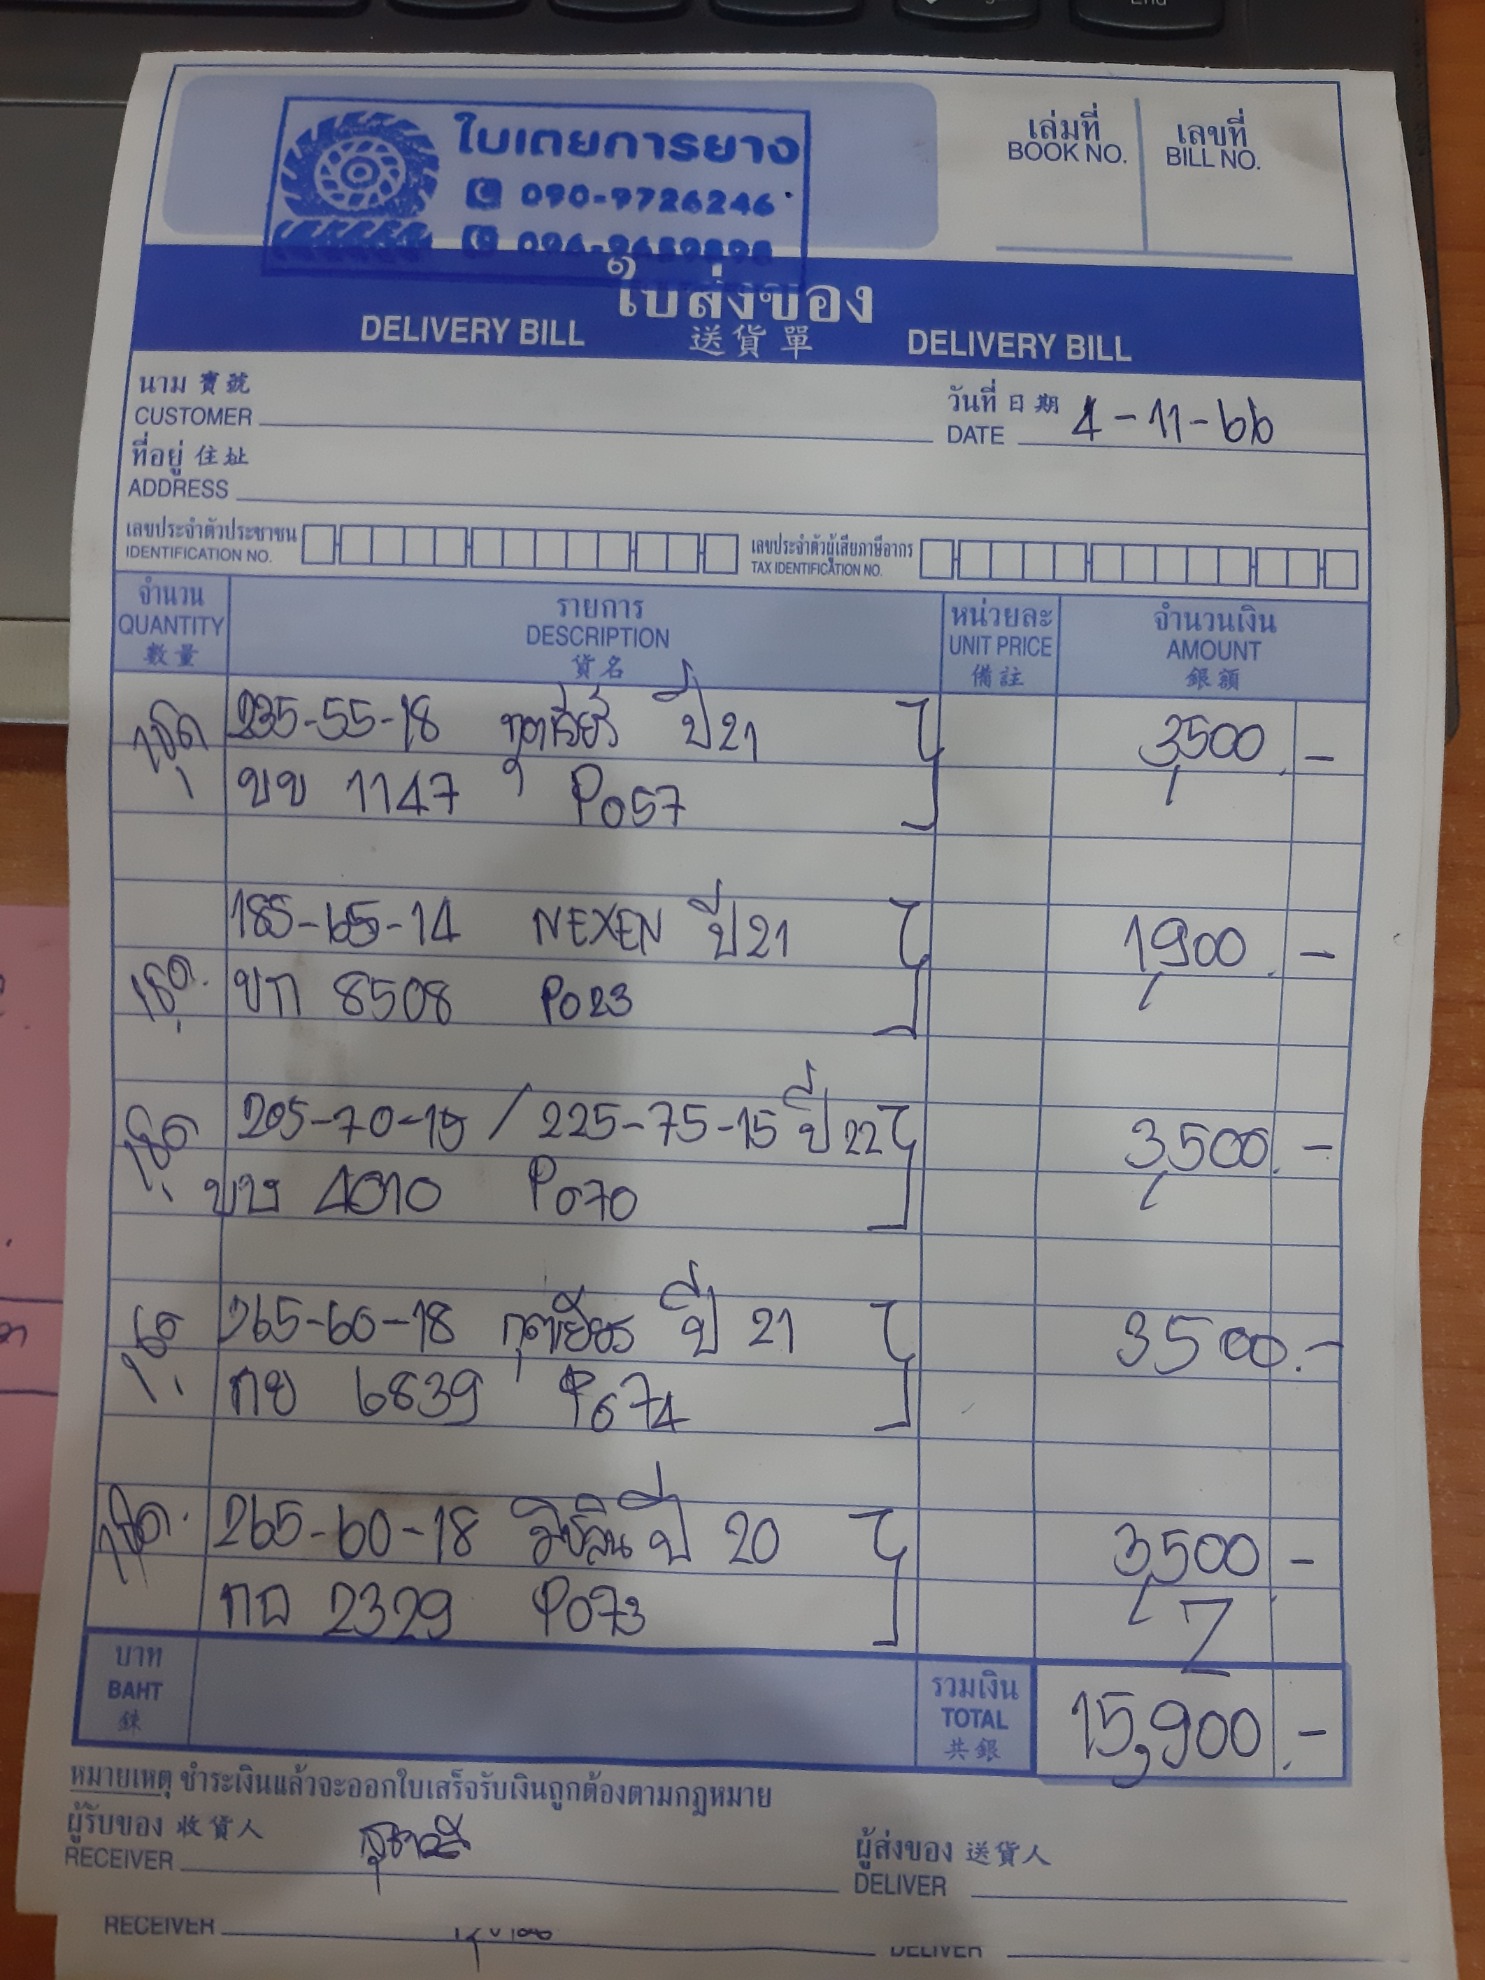 ใบเตยการยาง
090-9726246
096-9659898
เล่มที่
BOOK NO.
เลขที่
BILL NO.
ใบส่งของ
DELIVERY BILL 送貨單 DELIVERY BILL
นาม 寶號
CUSTOMER
วันที่ 日期
DATE 4-11-66
ที่อยู่ 住址
ADDRESS
เลขประจำตัวประชาชน
IDENTIFICATION NO.
เลขประจำตัวผู้เสียภาษีอากร
TAX IDENTIFICATION NO.
จำนวน รายการ หน่วยละ จำนวนเงิน
QUANTITY DESCRIPTION UNIT PRICE AMOUNT
數量 貨名 備註 銀額
1ชุด 235-55-18 กู๊ดเยียร์ ปี 21 3,500 -
ขข 1147 P057
185-65-14 NEXEN ปี 21 1,900 -
1ชุด. ขก 8508 P023
1ชุด 205-70-15 / 225-75-15 ปี 22 3,500 -
4010 P070
1ชุด 265-60-18 กู๊ดเยียร ปี 21 3500.-
กย 6839 P074
1ชุด. 265-60-18 มิชลิน ปี 20 3,500 -
2329 P073
บาท
BAHT
銖
รวมเงิน
TOTAL
共銀
15,900.-
หมายเหตุ ชำระเงินแล้วจะออกใบเสร็จรับเงินถูกต้องตามกฎหมาย
ผู้รับของ 收貨人
RECEIVER
ผู้ส่งของ 送貨人
DELIVER
RECEIVER
DELIVER